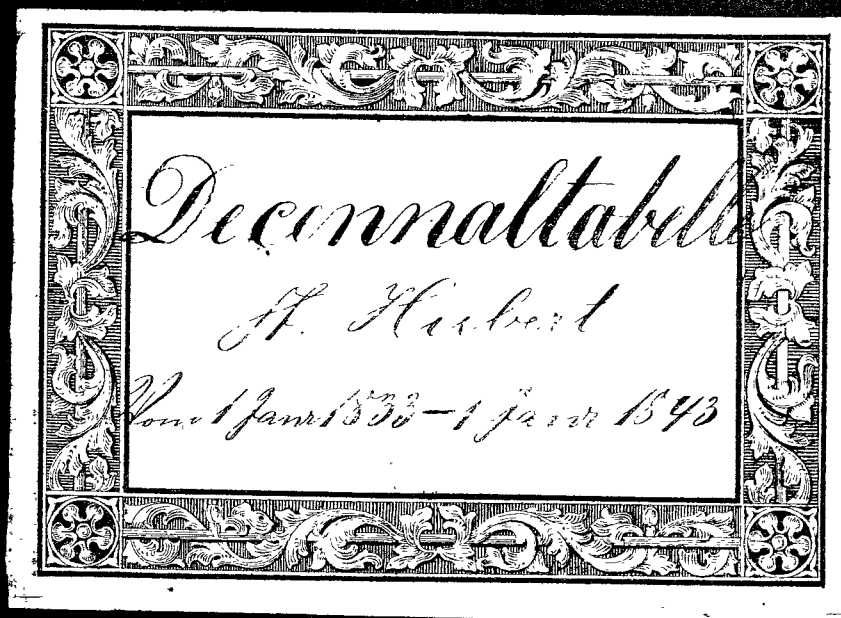 Decennaltabelle
St. Hubert
Vom 1 Janr 1833 – 1 Janr 1843